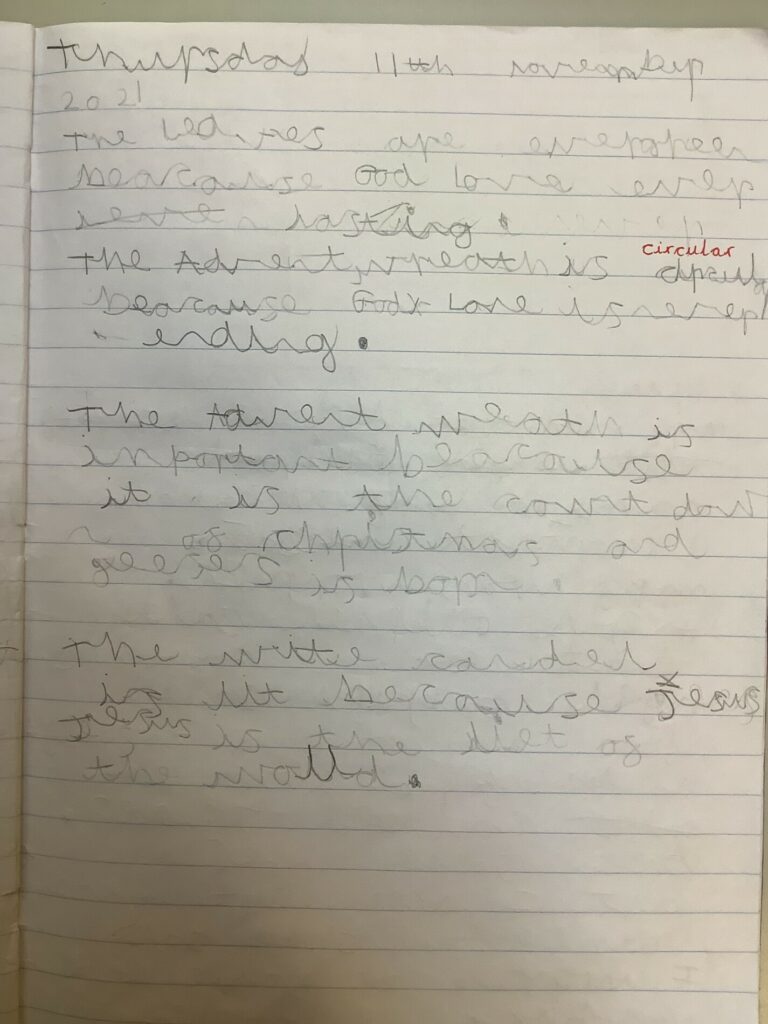 Thursday 11th november
2021
The Leaves are evergreen
beacause God Love ever
lasting.
circular
The Advent wreath is
beacause God Love is never
ending.
The Advent wreath is
inportant beacause
it is the count dow
n of christmas and
geeses is born.
The witte candel
is lit because Jesus
Jesus is the liet of
the world.